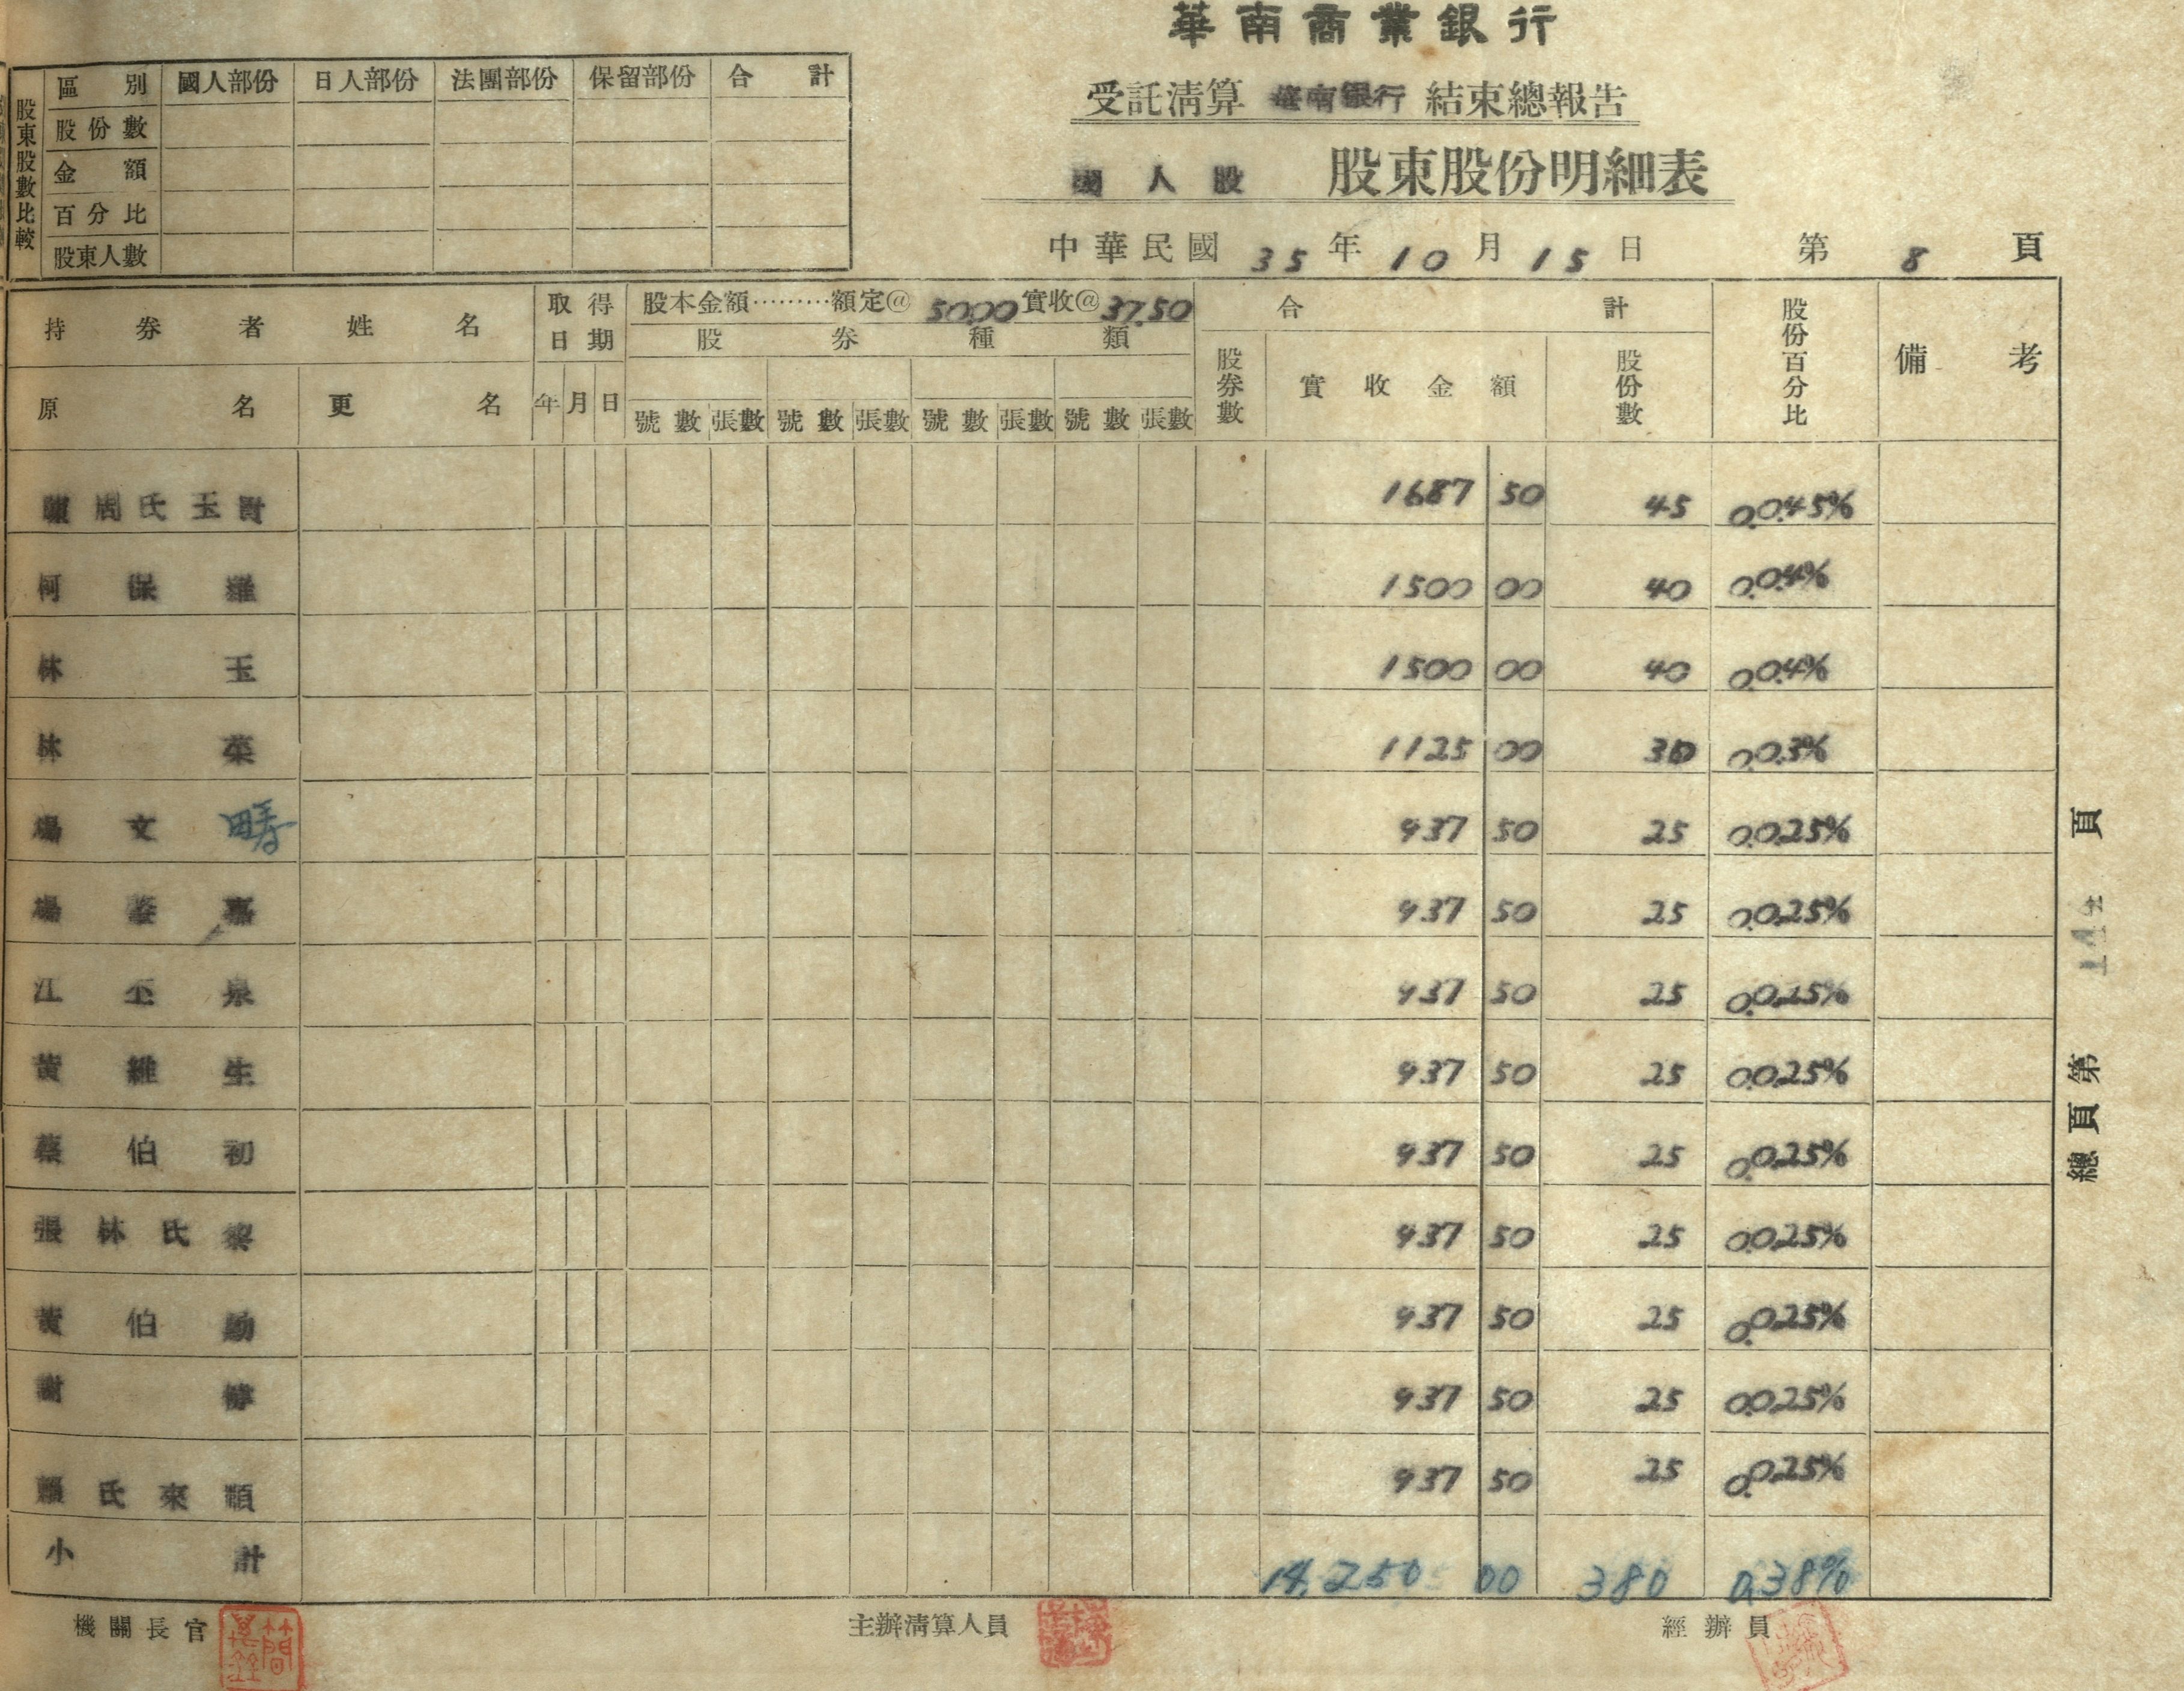 華南商業銀行
受託清算 華南銀行 結束總報告
國人股 股東股份明細表
中華民國 35 年 10 月 15 日 第 8 頁
股東股數比較
區別 國人部份 日人部份 法團部份 保留部份 合計
股份數
金額
百分比
股東人數
持券者姓名 取得日期 股本金額………額定@ 50.00 實收@ 37.50 合計 股份百分比 備考
股券種類
原名 更名 年 月 日 號數 張數 號數 張數 號數 張數 號數 張數 股券數 實收金額 股份數
周氏玉 1687 50 45 0.045%
柯保羅 1500 00 40 0.04%
林玉 1500 00 40 0.04%
林 1125 00 30 0.03%
楊文疇 937 50 25 0.025%
楊 937 50 25 0.025%
江 泉 937 50 25 0.025%
黃維生 937 50 25 0.025%
蔡伯初 937 50 25 0.025%
張林氏 937 50 25 0.025%
黃伯 937 50 25 0.025%
謝 937 50 25 0.025%
賴氏來 937 50 25 0.025%
小計 14,250 00 380 0.38%
機關長官 主辦清算人員 經辦員
總頁第 頁